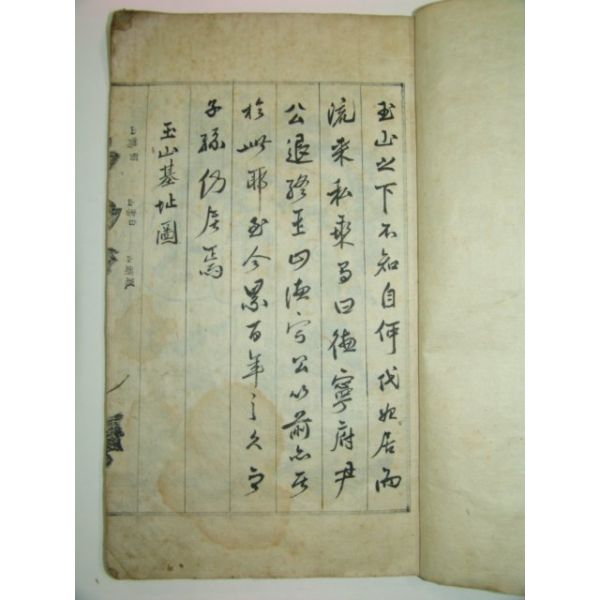 玉山之下不知自何代始居而
流來私乘曰德寧府尹
公退終至德寧公以前亦居
於此耶至今累百年之久而
子孫仍居焉
玉山基址圖